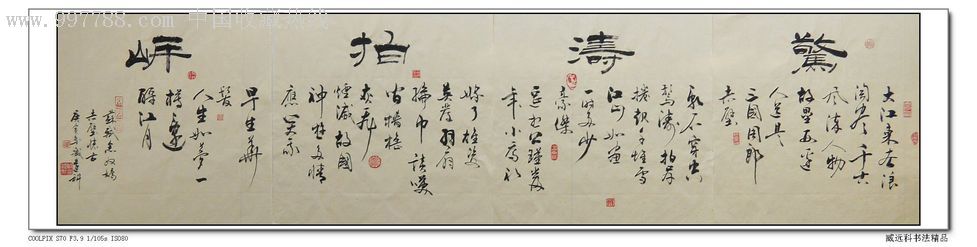 www.997788.com 中国收藏热线
驚濤拍岸
大江東去浪
淘盡千古
風流人物
故壘西邊
人道是
三國周郎
赤壁
亂石穿空
驚濤拍岸
捲起千堆雪
江山如畫
一時多少
豪傑
遙想公瑾當
年小喬初
嫁了雄姿
英發羽扇
綸巾談笑
間檣櫓
灰飛
煙滅故國
神游多情
應笑我
早生華
髮
人生如夢一
樽還
酹江月
蘇軾念奴嬌
赤壁懷古
庚寅年威遠科
COOLPIX S70 F3.9 1/105s ISO80
威远科书法精品